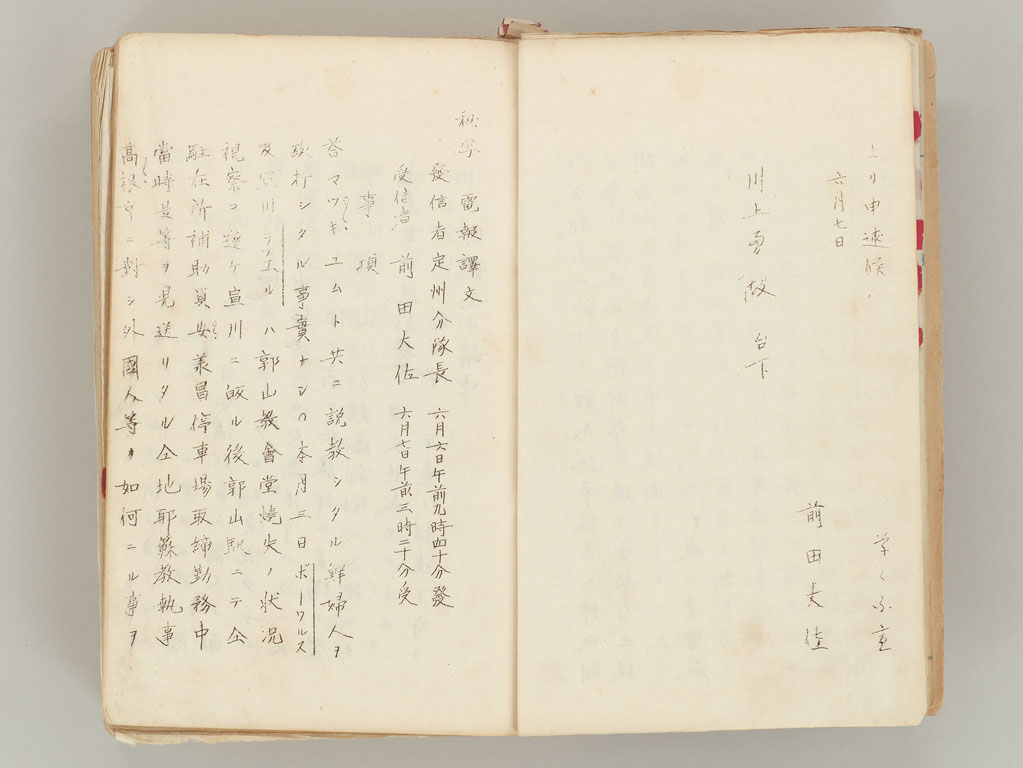 上リ申逑候
草々不宣
六月七日
前田大佐
川上勇殿 台下
秘写 電報譯文
發信者定州分隊長 六月六日午前九時四十分發
受信者 前田大佐 六月七日午前三時二十分受
事項
答マツキユムト共ニ説教シタル鮮婦人ヲ
欧打シタル事實ナシ〇本月三日ボーワルス
及宣川テリエルハ郭山教會堂燒失ノ状況
視察ヲ遂ケ宣川ニ皈ル後郭山駅ニテ仝
駐在所補助員安義昌停車場取締勤務中
當時是等ヲ見送リタル仝地耶蘇教執事
高根亨ニ對シ外國人等ハ如何ニル事ヲ